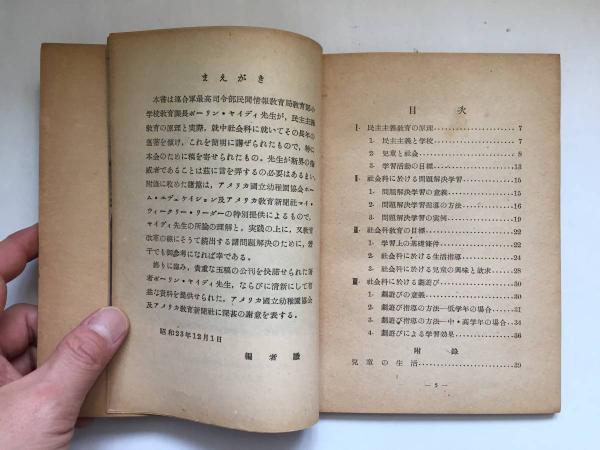 まえがき
本書は連合軍最高司令部民間情報教育局教育部小
学校教育課長ポーリン・ヤイディ先生が、民主主義
教育の原理と実際、就中社会科に就いてその長年の
蘊蓄を傾け、これを簡明に講ぜられたもので、特に
本会のために稿を寄せられたもの。先生が斯界の権
威者であることは茲に言を弄する必要はあるまい。
附録に收めた諸篇は、アメリカ國立幼稚園協会ホー
ム・エデュケイション及アメリカ教育新聞社マイ・
ウィークリー・リーダーの特別提供によるもので、
ヤイディ先生の所論の理解と、実践の上に、又教育
改革の線にそうて続出する諸問題解決のために、若
干でも御参考になれば幸である。
終りに臨み、貴重な玉稿の公刊を快諾せられた著
者ポーリン・ヤイディ先生、ならびに清新にして有
益な資料を提供せられた。アメリカ國立幼稚園協会
及アメリカ教育新聞社に深甚の謝意を表する。
昭和23年12月1日
編者識
目次
Ⅰ. 民主主義教育の原理 7
1. 民主主義と学校 7
2. 兒童と社会 8
3. 学習活動の目標 13
Ⅱ. 社会科に於ける問題解決学習 15
1. 問題解決学習の意義 15
2. 問題解決学習指導の方法 16
3. 問題解決学習の実例 19
Ⅲ. 社会科教育の目標 22
1. 学習上の基礎條件 22
2. 社会科に於ける生活指導 24
3. 社会科に於ける兒童の興味と欲求 28
Ⅳ. 社会科に於ける劇遊び 30
1. 劇遊びの意義 30
2. 劇遊び指導の方法―低学年の場合 31
3. 劇遊び指導の方法―中・高学年の場合 34
4. 劇遊びによる学習効果 36
附錄
兒童の生活 39
― 5 ―